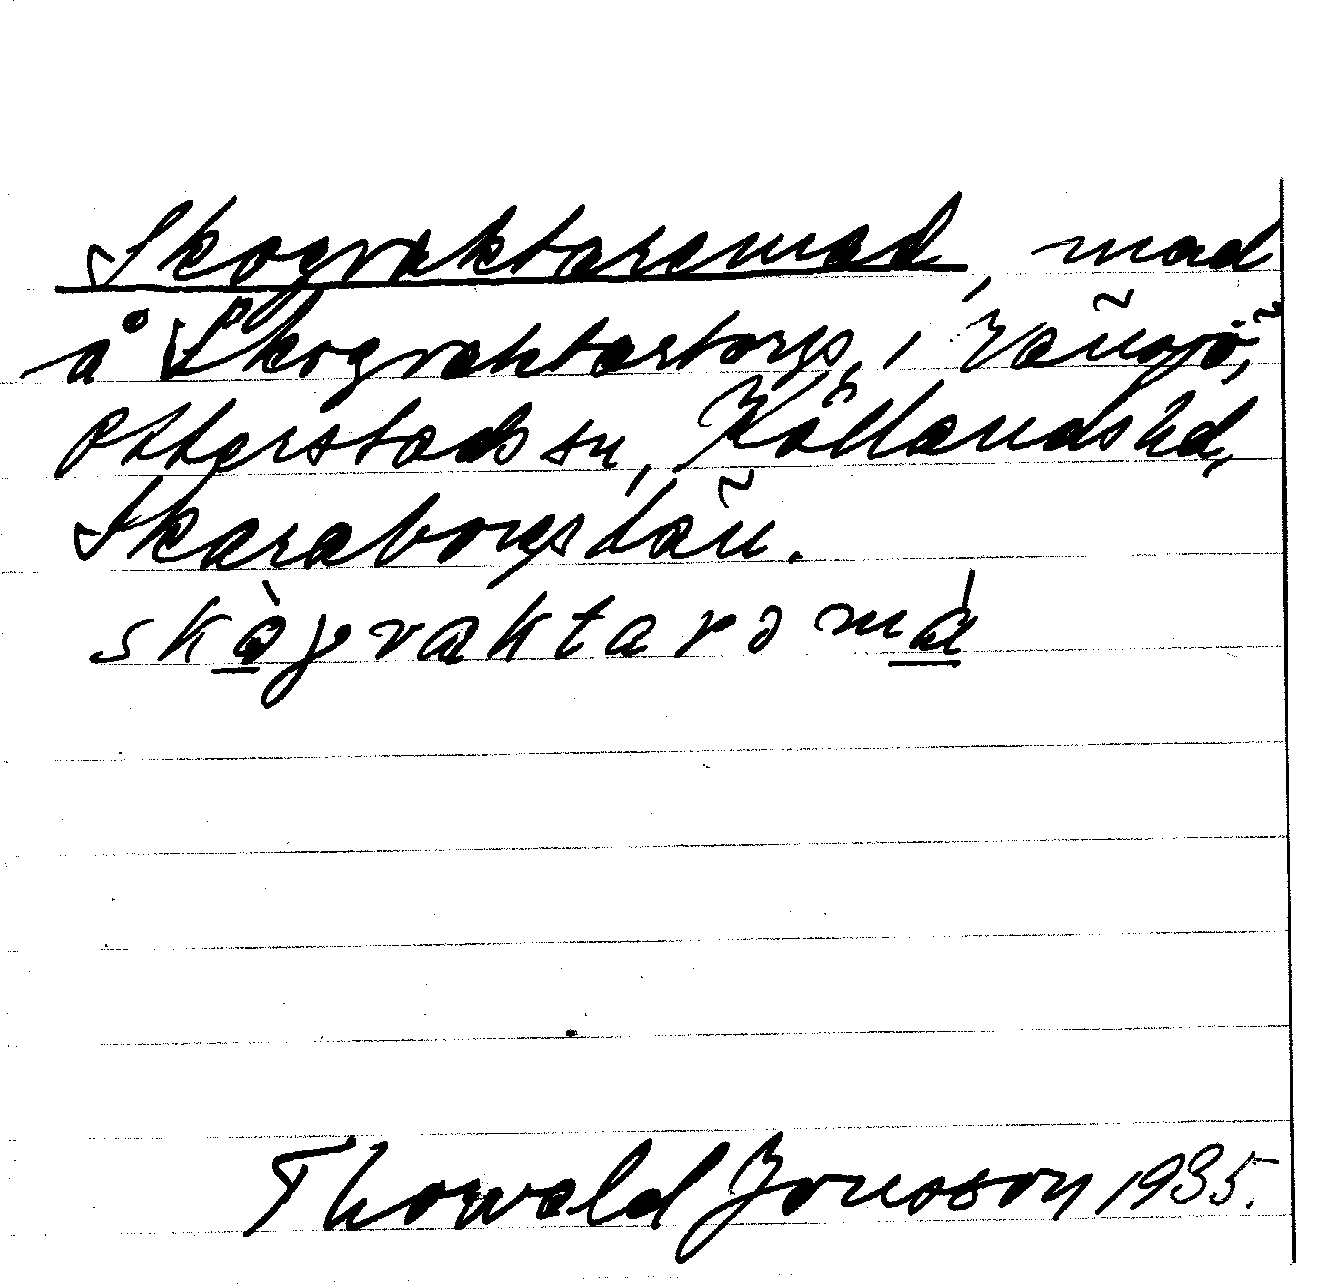 Skogvaktaremad, mad
å Skogvaktartorp, i
Otterstads sn, Kållands hd,
Skaraborgs län.
skògvaktarə má
Thorvald Jonsson 1935.